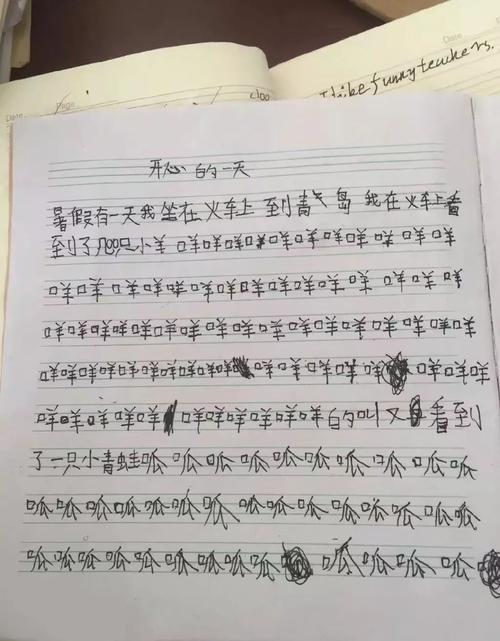 Date
Page
cloo
Date
I like funny teachers.
开心 的一天
暑假有一天我 坐在 火车上 到青气岛 我在火车上看
到了几100只小羊 咩咩咩咩咩咩咩咩咩咩咩
咩咩咩咩咩咩咩咩咩咩咩咩咩咩咩
咩咩咩咩咩咩咩咩咩咩咩咩咩咩咩咩咩
咩咩咩咩咩咩咩咩咩咩咩咩咩咩咩咩
咩咩咩咩咩咩咩咩咩咩咩的叫又看到
了一只小青蛙呱呱呱呱呱呱呱呱呱呱
呱呱呱呱呱呱呱呱呱呱呱呱呱呱呱
呱呱呱呱呱呱呱呱呱呱呱呱呱